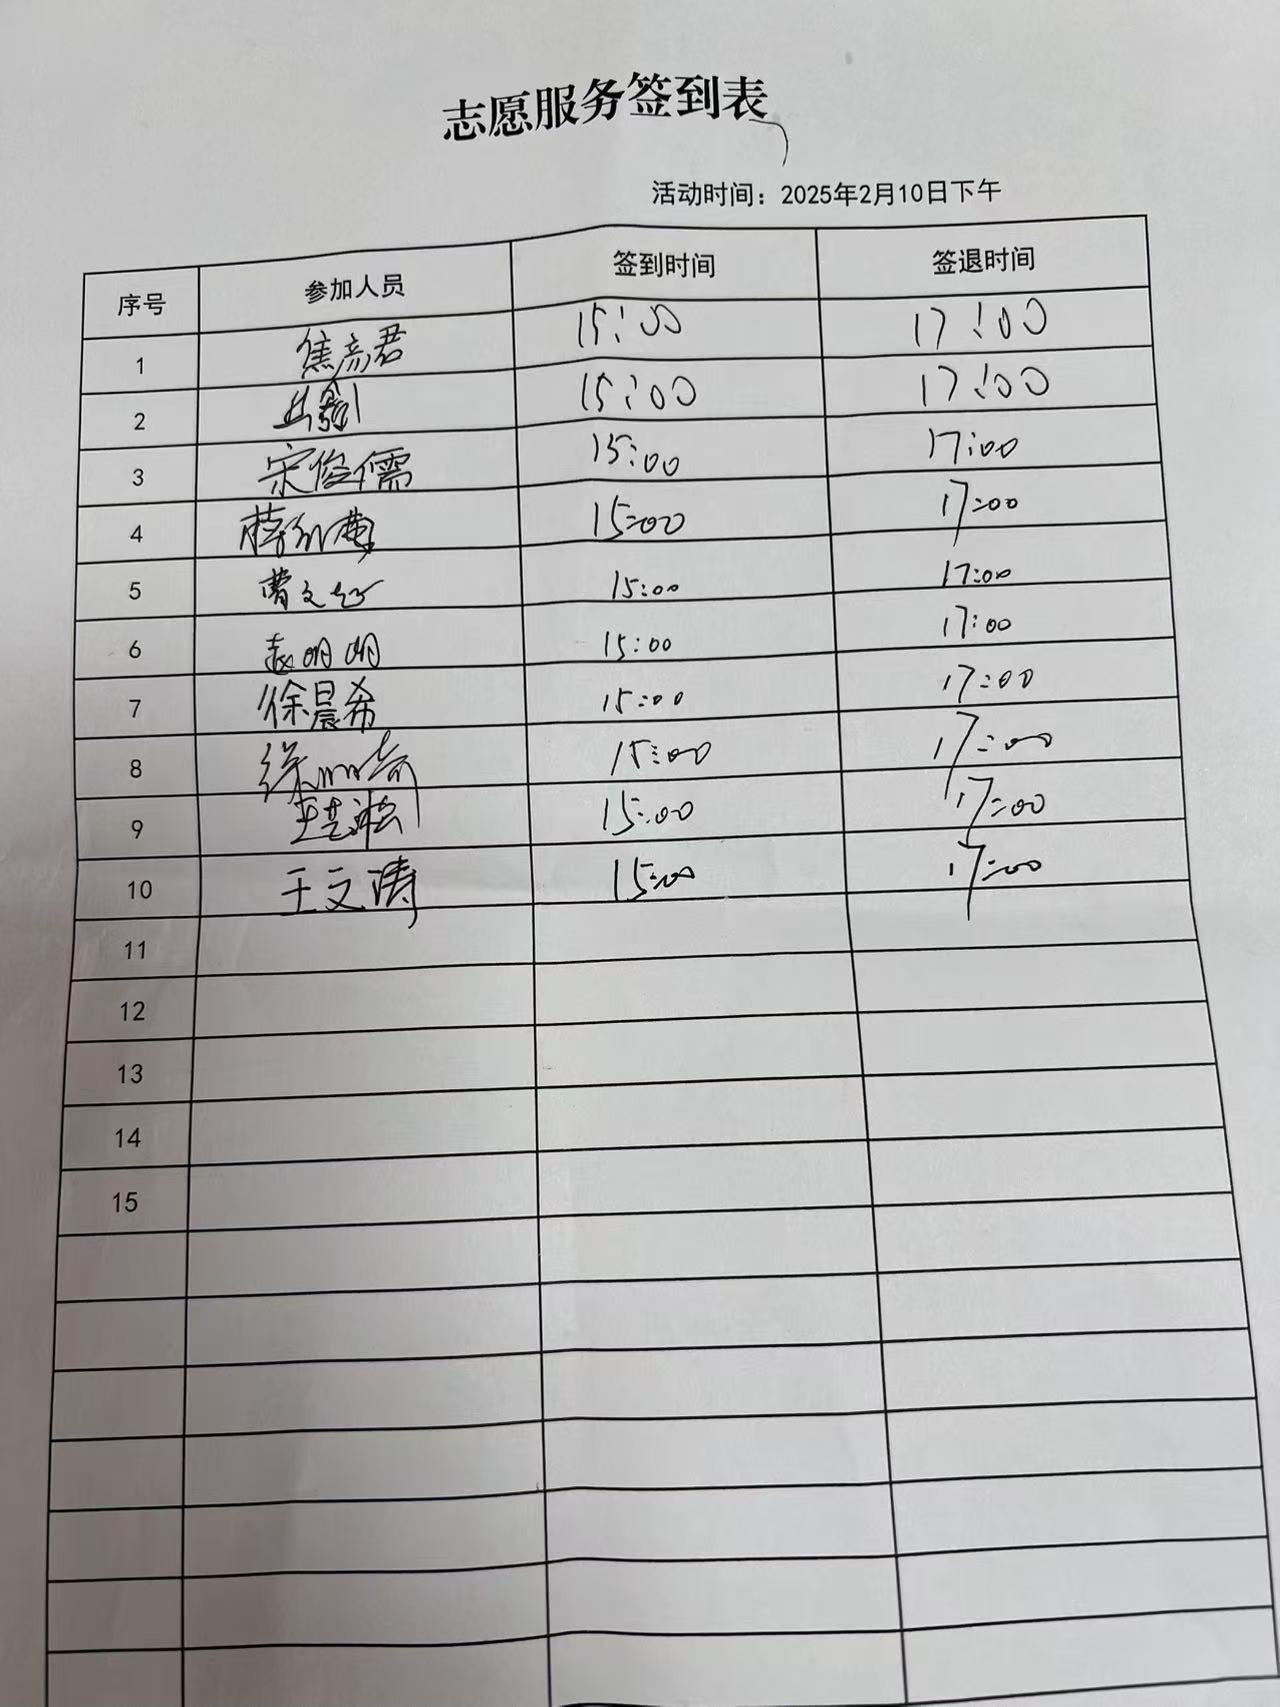 志愿服务签到表
活动时间：2025年2月10日下午
序号 参加人员 签到时间 签退时间
1 焦彦君 15:00 17:00
2 15:00 17:00
3 宋俊儒 15:00 17:00
4 蒋 15:00 17:00
5 曹文 15:00 17:00
6 赵明明 15:00 17:00
7 徐晨希 15:00 17:00
8 徐 15:00 17:00
9 王艺 15:00 17:00
10 王文涛 15:00 17:00
11
12
13
14
15